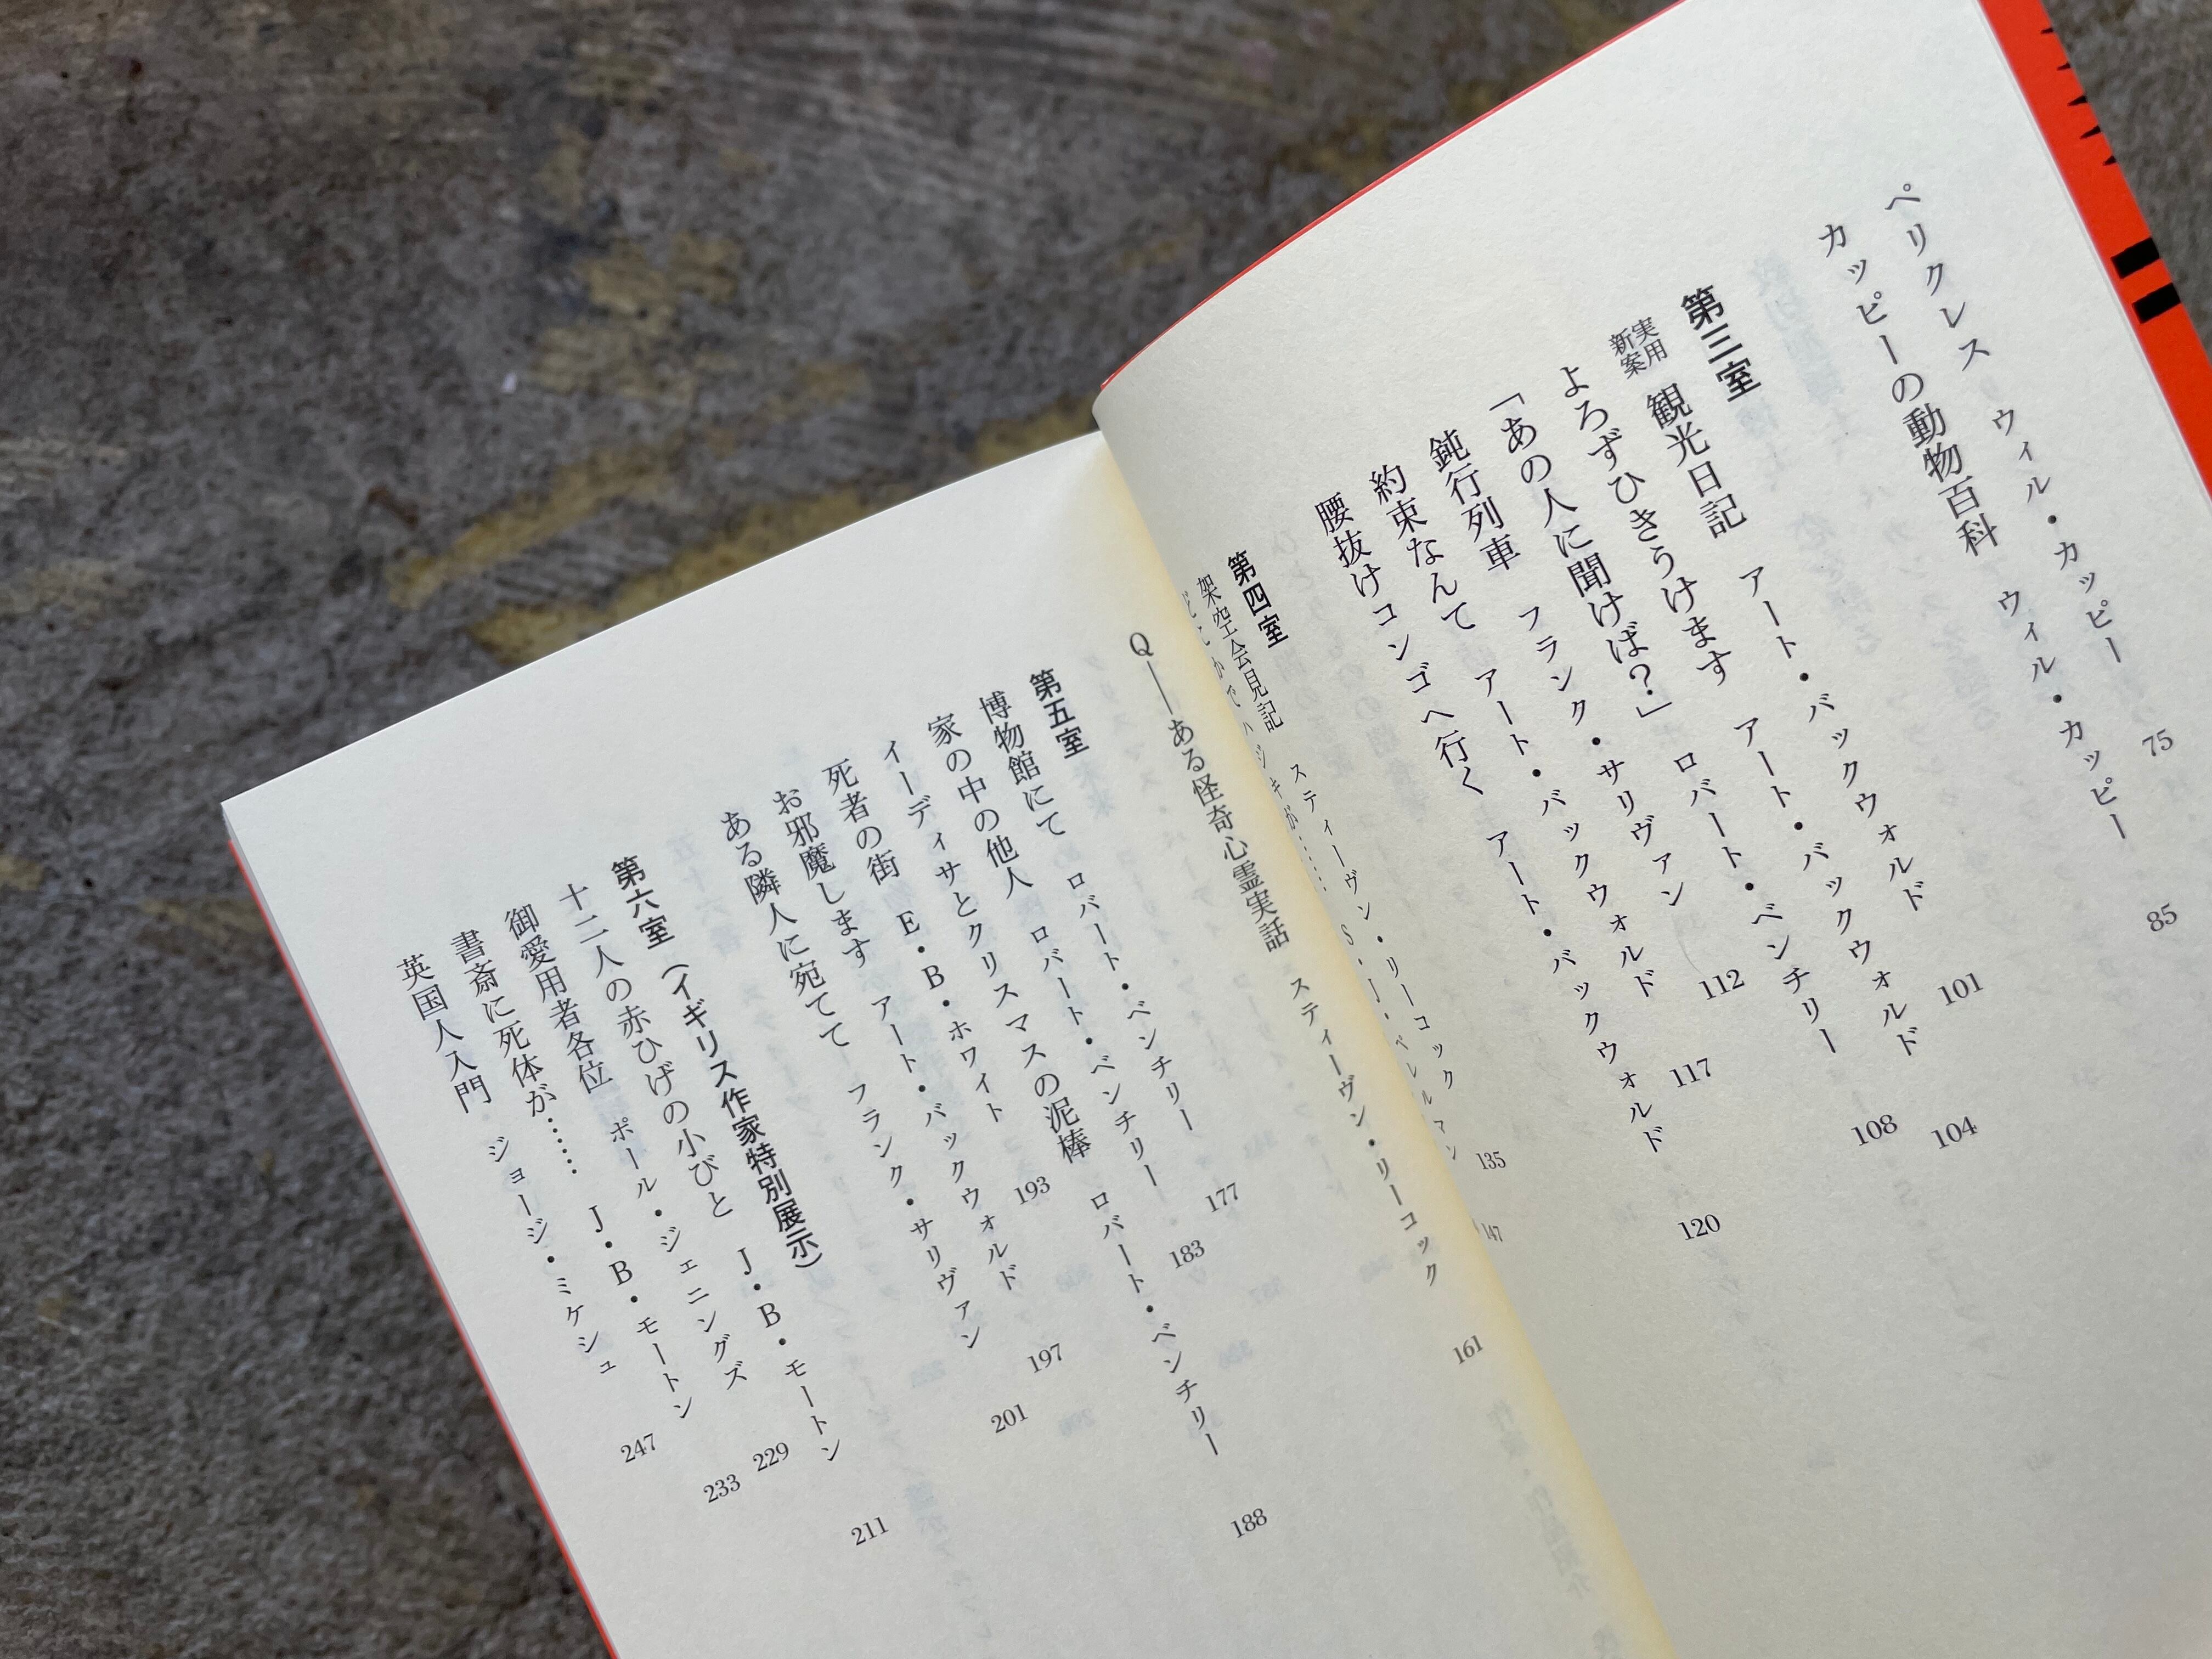 ペリクレス　ウィル・カッピー　75
カッピーの動物百科　ウィル・カッピー　85
第三室
実用新案　観光日記　アート・バックウォルド　101
よろずひきうけます　アート・バックウォルド　104
「あの人に聞けば？」　ロバート・ベンチリー　108
鈍行列車　フランク・サリヴァン　112
約束なんて　アート・バックウォルド　117
腰抜けコンゴへ行く　アート・バックウォルド　120
第四室
架空会見記　スティーヴン・リーコック　135
どこかでハジキが……　S・J・ペレルマン　147
Q――ある怪奇心霊実話　スティーヴン・リーコック　161
第五室
博物館にて　ロバート・ベンチリー　177
家の中の他人　ロバート・ベンチリー　183
イーディサとクリスマスの泥棒　ロバート・ベンチリー　188
死者の街　E・B・ホワイト　193
お邪魔します　アート・バックウォルド　197
ある隣人に宛てて　フランク・サリヴァン　201
第六室（イギリス作家特別展示）
十二人の赤ひげの小びと　J・B・モートン　211
御愛用者各位　ポール・ジェニングズ　229
書斎に死体が……　J・B・モートン　233
英国人入門　ジョージ・ミケシュ　247